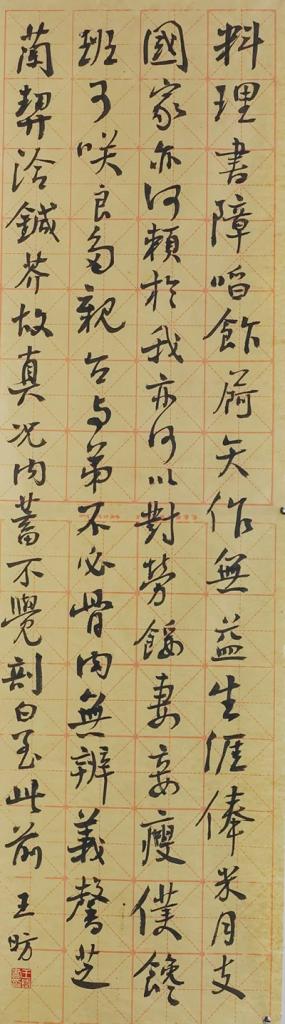 料理書障啗飰屙矢作無益生涯俸米月支
國家亦何賴於我亦何以對勞餒妻妾瘦僕饞
班可咲良親台与弟不必骨肉無辨義馨芝
蘭契洽鍼芥故真况肉蓄不覺剖白至此前 王昉